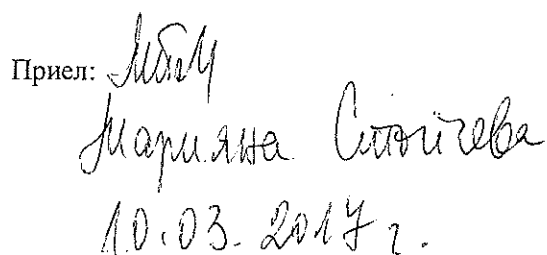 Приел:
Марияна Стойчева
10.03.2017 г.